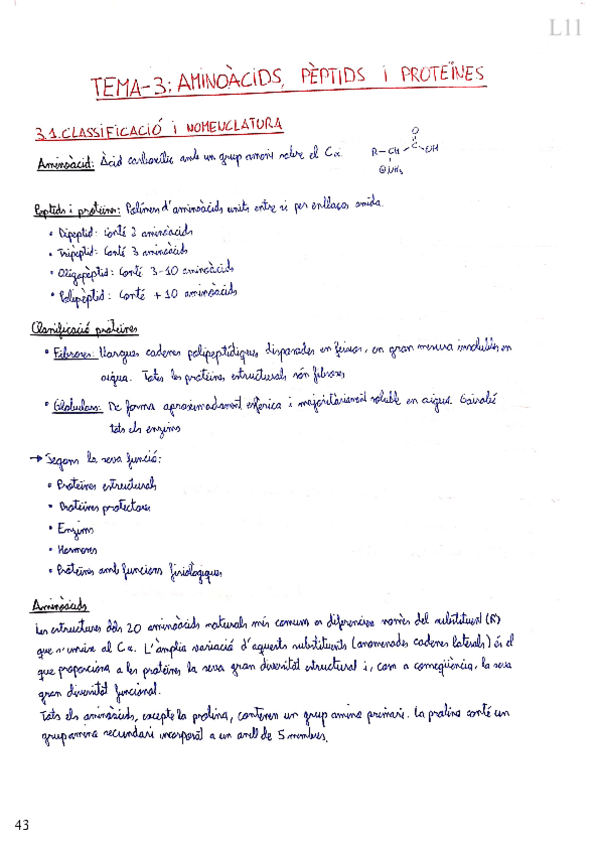 L11
TEMA-3: AMINOÀCIDS, PÈPTIDS i PROTEÏNES
3.1. CLASSIFICACIÓ i NOMENCLATURA
Aminoàcid: Àcid carboxílic amb un grup amoni sobre el Cα.
R-CH
O
C
OH
⊕NH₃
Peptids i proteïnes: Polímers d'aminoàcids units entre si per enllaços amida.
• Dipèptid: conté 2 aminoàcids
• Tripèptid: Conté 3 aminoàcids
• Oligopèptid: Conté 3-10 aminoàcids
• Polipèptid: Conté +10 aminoàcids
Classificació proteïnes
• Fibroses: Llargues cadenes polipeptídiques, disposades en feixos, en gran mesura insolubles en
aigua. Totes les proteïnes estructurals són fibroses
• Globulars: De forma aproximadament esfèrica i majoritàriament soluble en aigua. Gairebé
tots els enzims
→ Segons la seva funció:
• Proteïnes estructurals
• Proteïnes protectores
• Enzims
• Hormones
• Proteïnes amb funcions fisiològiques
Aminoàcids
Les estructures dels 20 aminoàcids naturals més comuns es diferencien només del substituent (R)
que s'uneix al Cα. L'àmplia variació d'aquests substituents (anomenades cadenes laterals) és el
que proporciona a les proteïnes la seva gran diversitat estructural i, com a conseqüència, la seva
gran diversitat funcional.
Tots els aminoàcids, excepte la prolina, contenen un grup amina primari. La prolina conté un
grup amina secundari incorporat a un anell de 5 membres.
43